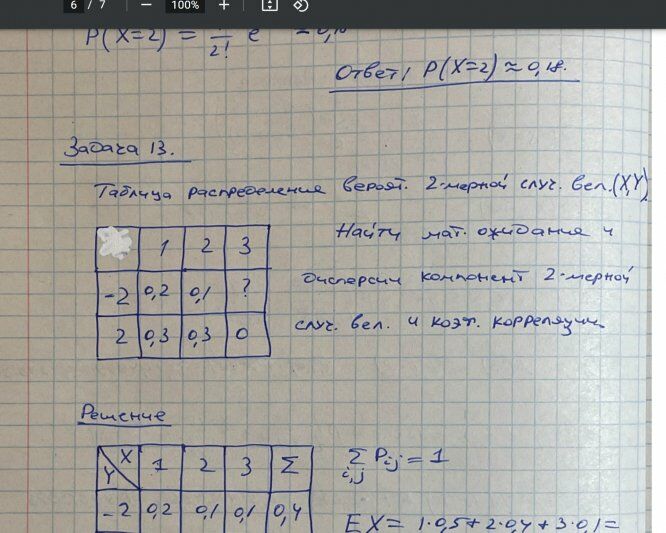 6 / 7 — 100% +
P(X=2) = — e
2!
Ответ, P(X=2) ≈ 0,18.
Задача 13.
Таблица распределения вероят. 2-мерной случ. вел.(X,Y)
1 2 3
-2 0,2 0,1 ?
2 0,3 0,3 0
Найти мат. ожидания и
дисперсии компонент 2-мерной
случ. вел. и коэт. корреляции
Решение
Y X 1 2 3 Σ
-2 0,2 0,1 0,1 0,4
Σ Pij = 1
i,j
EX = 1·0,5+2·0,4+3·0,1=